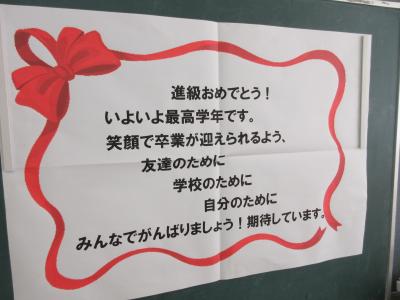 進級おめでとう！
いよいよ最高学年です。
笑顔で卒業が迎えられるよう、
友達のために
学校のために
自分のために
みんなでがんばりましょう！期待しています。